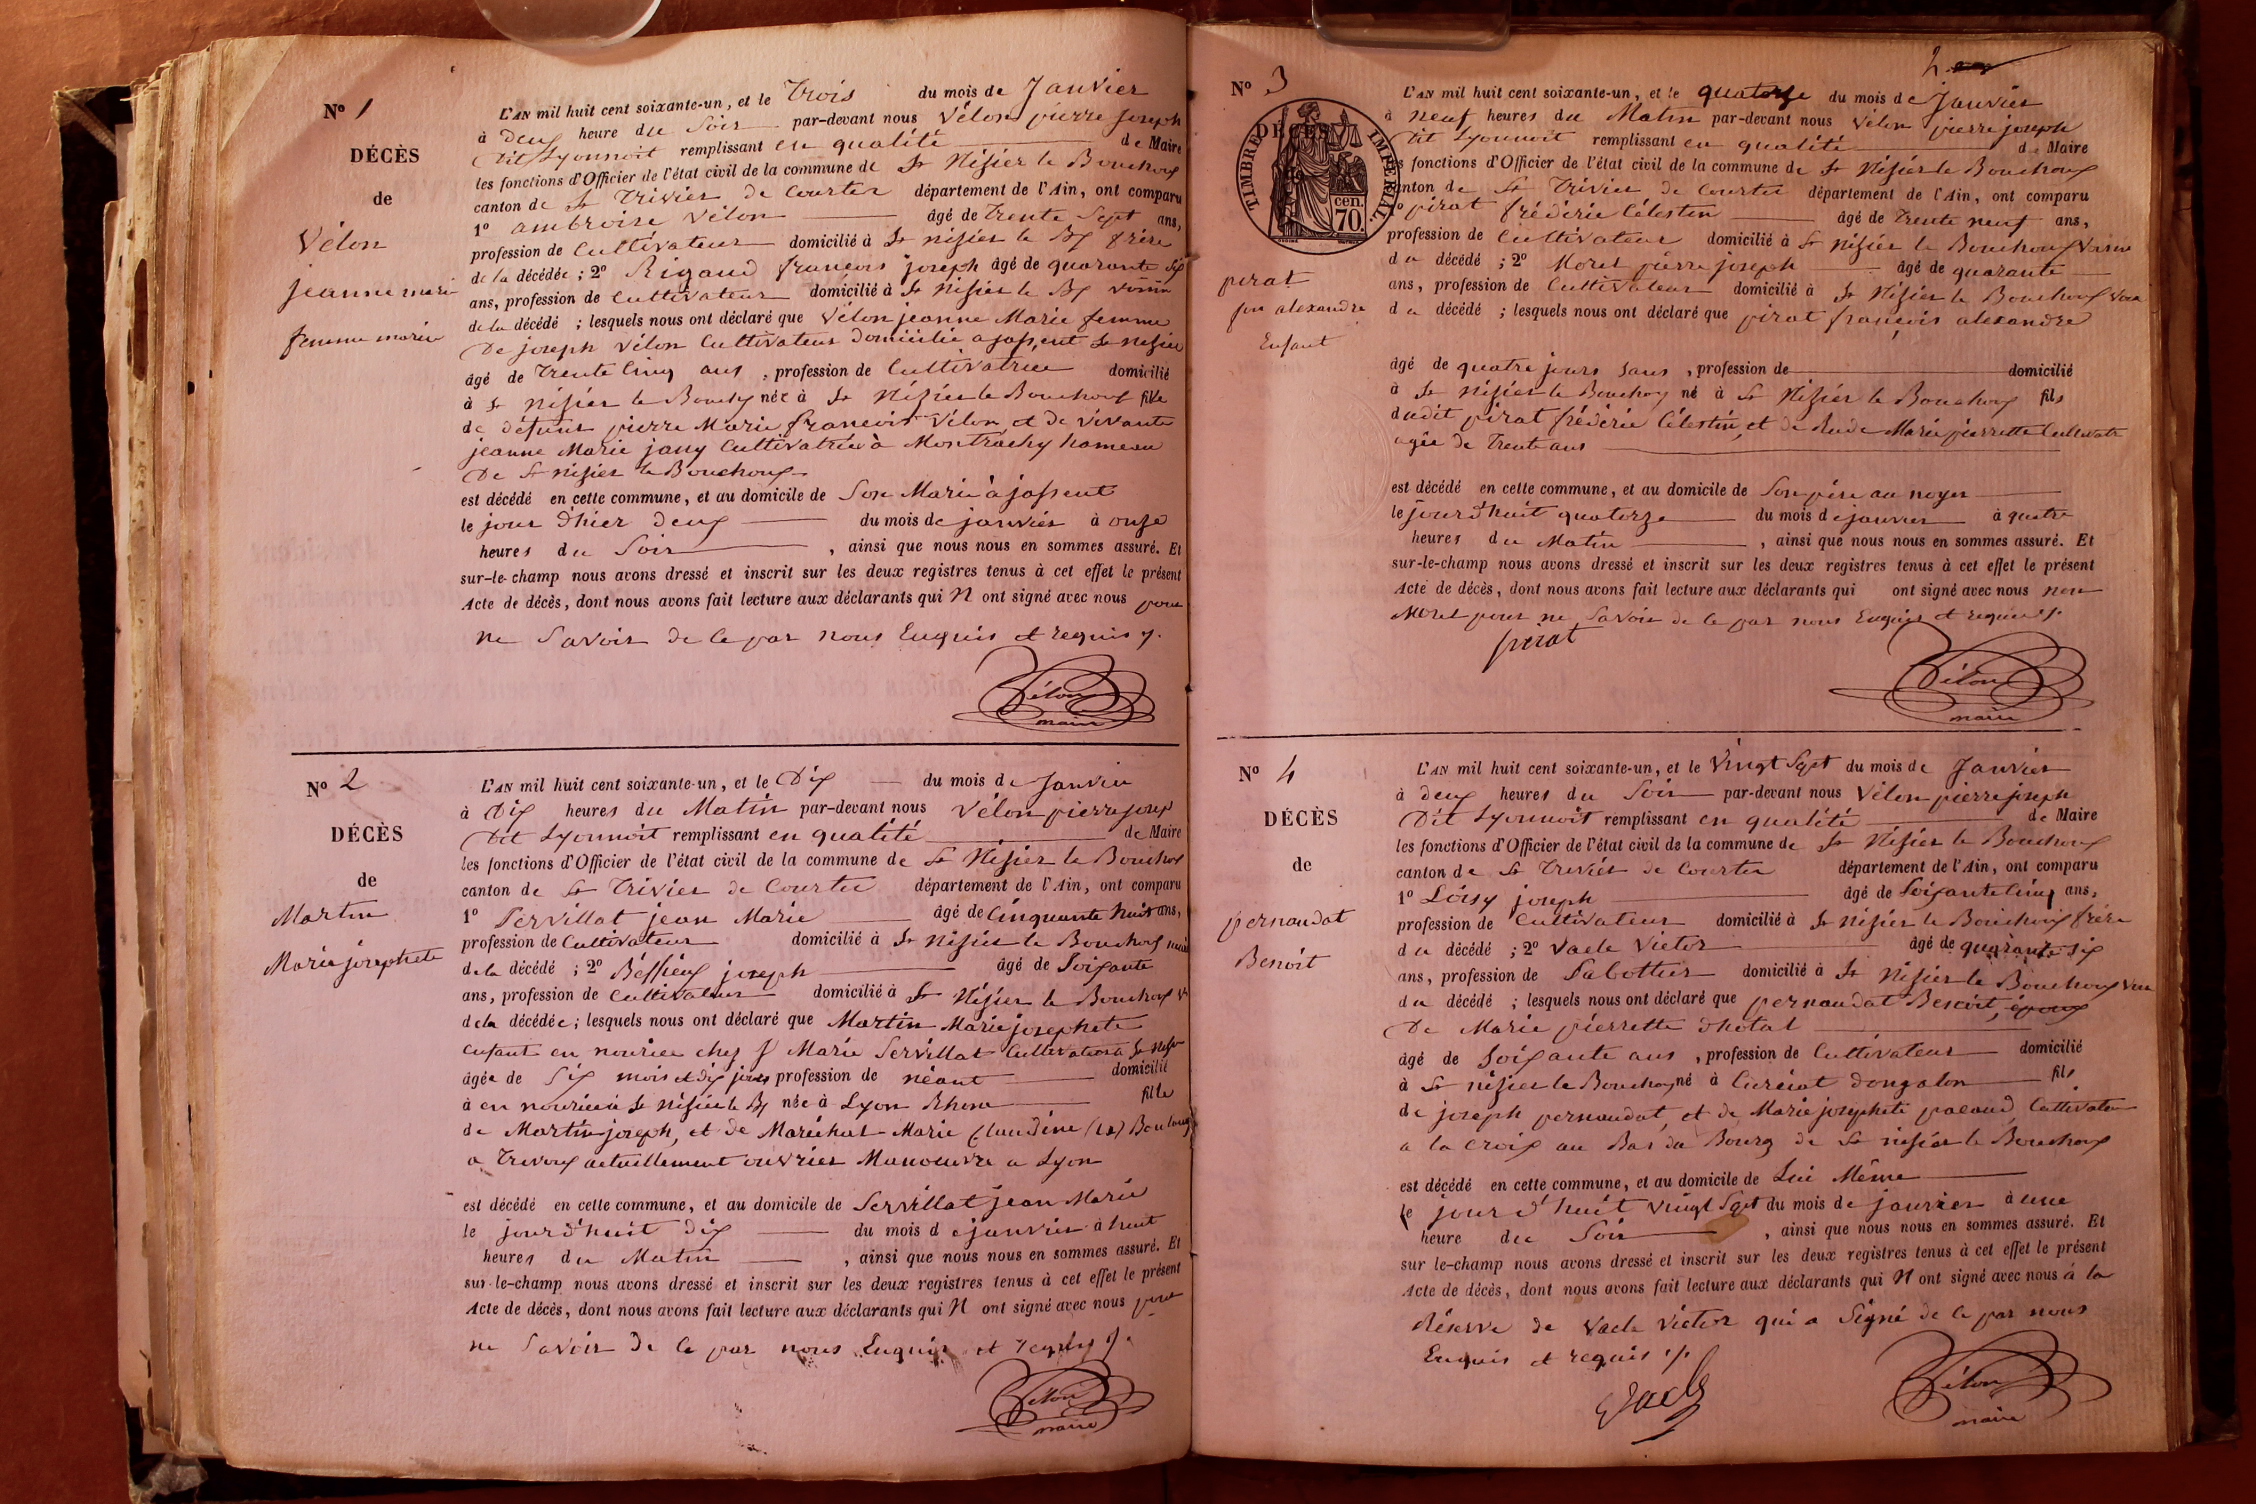 N° 1
DÉCÈS
de
Vélon
jeanne marie
femme marié
L'AN mil huit cent soixante-un, et le Trois du mois de Janvier
à deux heure du Soir par-devant nous Vélon pierre joseph
Dit Lyonnoit remplissant en qualité de Maire
les fonctions d'Officier de l'état civil de la commune de St Nisier le Bouchoux
canton de St Trivier de Courtes département de l'Ain, ont comparu
1° ambroise Vélon âgé de Trente Sept ans,
profession de Cultivateur domicilié à St nisier le Bx frère
de la décédée ; 2° Rigaud françois joseph âgé de quarante six
ans, profession de Cultivateur domicilié à St Nisier le Bx voisin
de la décédé ; lesquels nous ont déclaré que Vélon jeanne Marie femme
De joseph Vélon Cultivateur domicilié a jassent St nisier
âgé de Trente Cinq ans , profession de Cultivatrice domicilié
à St nisier le Bouchx née à St Nisier le Bouchoux fille
de défunt pierre Marie françois Vélon et de vivante
jeanne Marie jany Cultivatrice à Montrachy hameau
De St nisier le Bouchoux
est décédé en cette commune, et au domicile de Son Marie à jassent
le jour d'hier deux du mois de janvier à onze
heures du Soir , ainsi que nous nous en sommes assuré. Et
sur-le-champ nous avons dressé et inscrit sur les deux registres tenus à cet effet le présent
Acte de décès, dont nous avons fait lecture aux déclarants qui N ont signé avec nous pour
ne Savoir de ce par nous Enquis et requis ./.
Vélon
maire
N° 2
DÉCÈS
de
Martin
Marie josephete
L'AN mil huit cent soixante-un, et le Dix du mois de Janvier
à Dix heures du Matin par-devant nous Vélon pierre josep
Dit Lyonnoit remplissant en qualité de Maire
les fonctions d'Officier de l'état civil de la commune de St Nisier le Bouchox
canton de St Trivier de Courtes département de l'Ain, ont comparu
1° Servillat jean Marie âgé de Cinquante huit ans,
profession de Cultivateur domicilié à St Nisier le Bouchoux
de la décédé ; 2° Béssieux joseph âgé de Soixante
ans, profession de Cultivateur domicilié à St Nisier le Bouchoux
de la décédée ; lesquels nous ont déclaré que Martin Marie josephete
enfant en nourice chez J Marie Servillat Cultivateur à St Nisr
âgée de Six mois et dix jours profession de néant domicilié
à en nourice à St Nisier le Bx née à Lyon Rhone fille
de Martin joseph, et de Maréchal Marie Claudine
a Trevoux actuellement ouvrier Manouvre a Lyon
est décédé en cette commune, et au domicile de Servillat jean Marie
le jourd'huit dix du mois de janvier à huit
heures du Matin , ainsi que nous nous en sommes assuré. Et
sur-le-champ nous avons dressé et inscrit sur les deux registres tenus à cet effet le présent
Acte de décès, dont nous avons fait lecture aux déclarants qui N ont signé avec nous pour
ne Savoir de ce par nous Enquis et requis ./.
Vélon
maire
2
N° 3
DÉCÈS
de
TIMBRE IMPÉRIAL
70 cen.
pirat
fois alexandre
Enfant
L'AN mil huit cent soixante-un, et le quatorze du mois de Janvier
à neuf heures du Matin par-devant nous Vélon pierre joseph
Dit Lyonnoit remplissant en qualité de Maire
les fonctions d'Officier de l'état civil de la commune de St Nisier le Bouchoux
canton de St Trivier de Courtes département de l'Ain, ont comparu
1° pirat frédéric Célestin âgé de Trente neuf ans,
profession de Cultivateur domicilié à St Nisier le Bouchoux
du décédé ; 2° Morel pierre joseph âgé de quarante
ans, profession de Cultivateur domicilié à St Nisier le Bouchoux
du décédé ; lesquels nous ont déclaré que pirat françois alexandre
âgé de quatre jours sans , profession de domicilié
à St Nisier le Bouchoux né à St Nisier le Bouchoux fils
dudit pirat frédéric Célestin, et de Rude Marie pierrette Cultivatr
agée de Trente ans
est décédé en cette commune, et au domicile de Son père au noyer
le jourd'huit quatorze du mois de janvier à quatre
heures du Matin , ainsi que nous nous en sommes assuré. Et
sur-le-champ nous avons dressé et inscrit sur les deux registres tenus à cet effet le présent
Acte de décès, dont nous avons fait lecture aux déclarants qui ont signé avec nous non
Morel pour ne Savoir de ce par nous Enquis et requis ./.
pirat
Vélon
maire
N° 4
DÉCÈS
de
pernaudat
Benoit
L'AN mil huit cent soixante-un, et le Vingt Sept du mois de Janvier
à deux heures du Soir par-devant nous Vélon pierre joseph
Dit Lyonnoit remplissant en qualité de Maire
les fonctions d'Officier de l'état civil de la commune de St Nisier le Bouchoux
canton de St Trivier de Courtes département de l'Ain, ont comparu
1° Loisy joseph âgé de Soixante Cinq ans,
profession de Cultivateur domicilié à St Nisier le Bouchoux frère
du décédé ; 2° Vacle Victor âgé de quarante six
ans, profession de Sabottier domicilié à St Nisier le Bouchoux
du décédé ; lesquels nous ont déclaré que pernaudat Benoit, époux
De Marie pierrette dhotal
âgé de Soixante ans , profession de Cultivateur domicilié
à St nizier le Bouchoux né à Curciat dongalon fils
de joseph pernaudat, et de Marie josephete pacaud, Cultivateur
a la Croix au Bas du Bourg de St nisier le Bouchoux
est décédé en cette commune, et au domicile de Lui Même
le jourd'huit Vingt Sept du mois de janvier à une
heure du Soir , ainsi que nous nous en sommes assuré. Et
sur-le-champ nous avons dressé et inscrit sur les deux registres tenus à cet effet le présent
Acte de décès, dont nous avons fait lecture aux déclarants qui N ont signé avec nous à la
Réserve de Vacle Victor qui a Signé de ce par nous
Enquis et requis ./.
Vacle
Vélon
maire